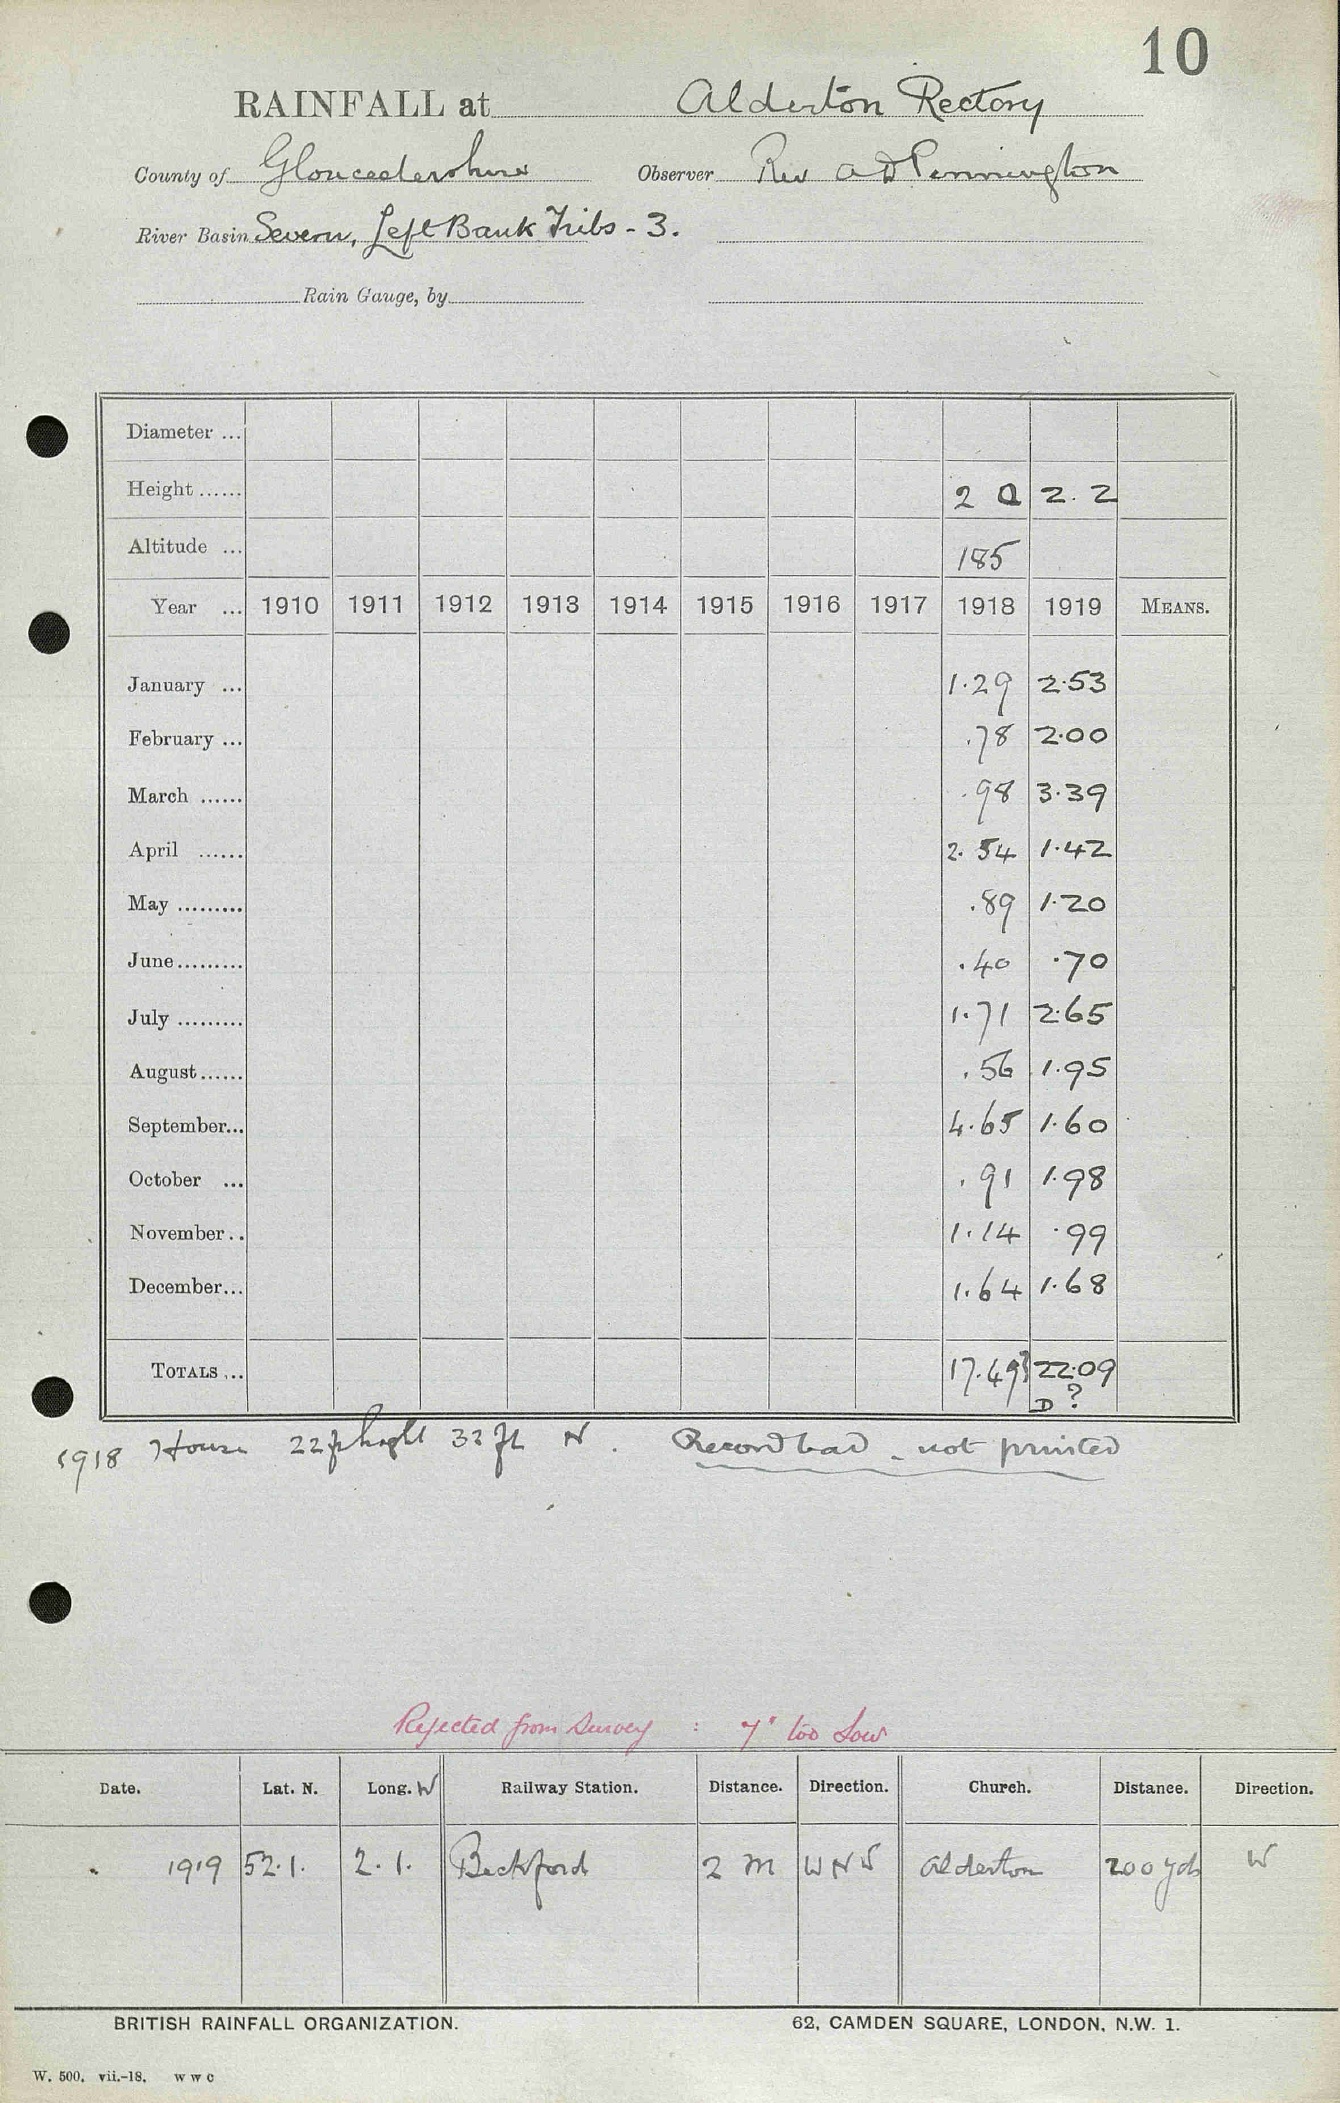 10
RAINFALL at Alderton Rectory
County of Gloucestershire Observer Rev A D Pennington
River Basin Severn, Left Bank Tribs - 3.
Rain Gauge, by
Diameter ...
Height ...... 2 0 2. 2
Altitude ... 185
Year ... 1910 1911 1912 1913 1914 1915 1916 1917 1918 1919 MEANS.
January ... 1.29 2.53
February ... .78 2.00
March ...... .98 3.39
April ...... 2.54 1.42
May ......... .89 1.20
June ......... .40 .70
July ......... 1.71 2.65
August ...... .56 1.95
September... 4.65 1.60
October ... .91 1.98
November.. 1.14 .99
December... 1.64 1.68
TOTALS ... 17.49? 22.09
D ?
1918 House 22ft 33 ft N. Record bad - not printed
Rejected from Survey : 7" too Low
Date. Lat. N. Long. W Railway Station. Distance. Direction. Church. Distance. Direction.
1919 52.1. 2.1. Beckford 2 m WNW Alderton 200 yds W
BRITISH RAINFALL ORGANIZATION. 62, CAMDEN SQUARE, LONDON, N.W. 1.
W. 500. vii.-18. W W C